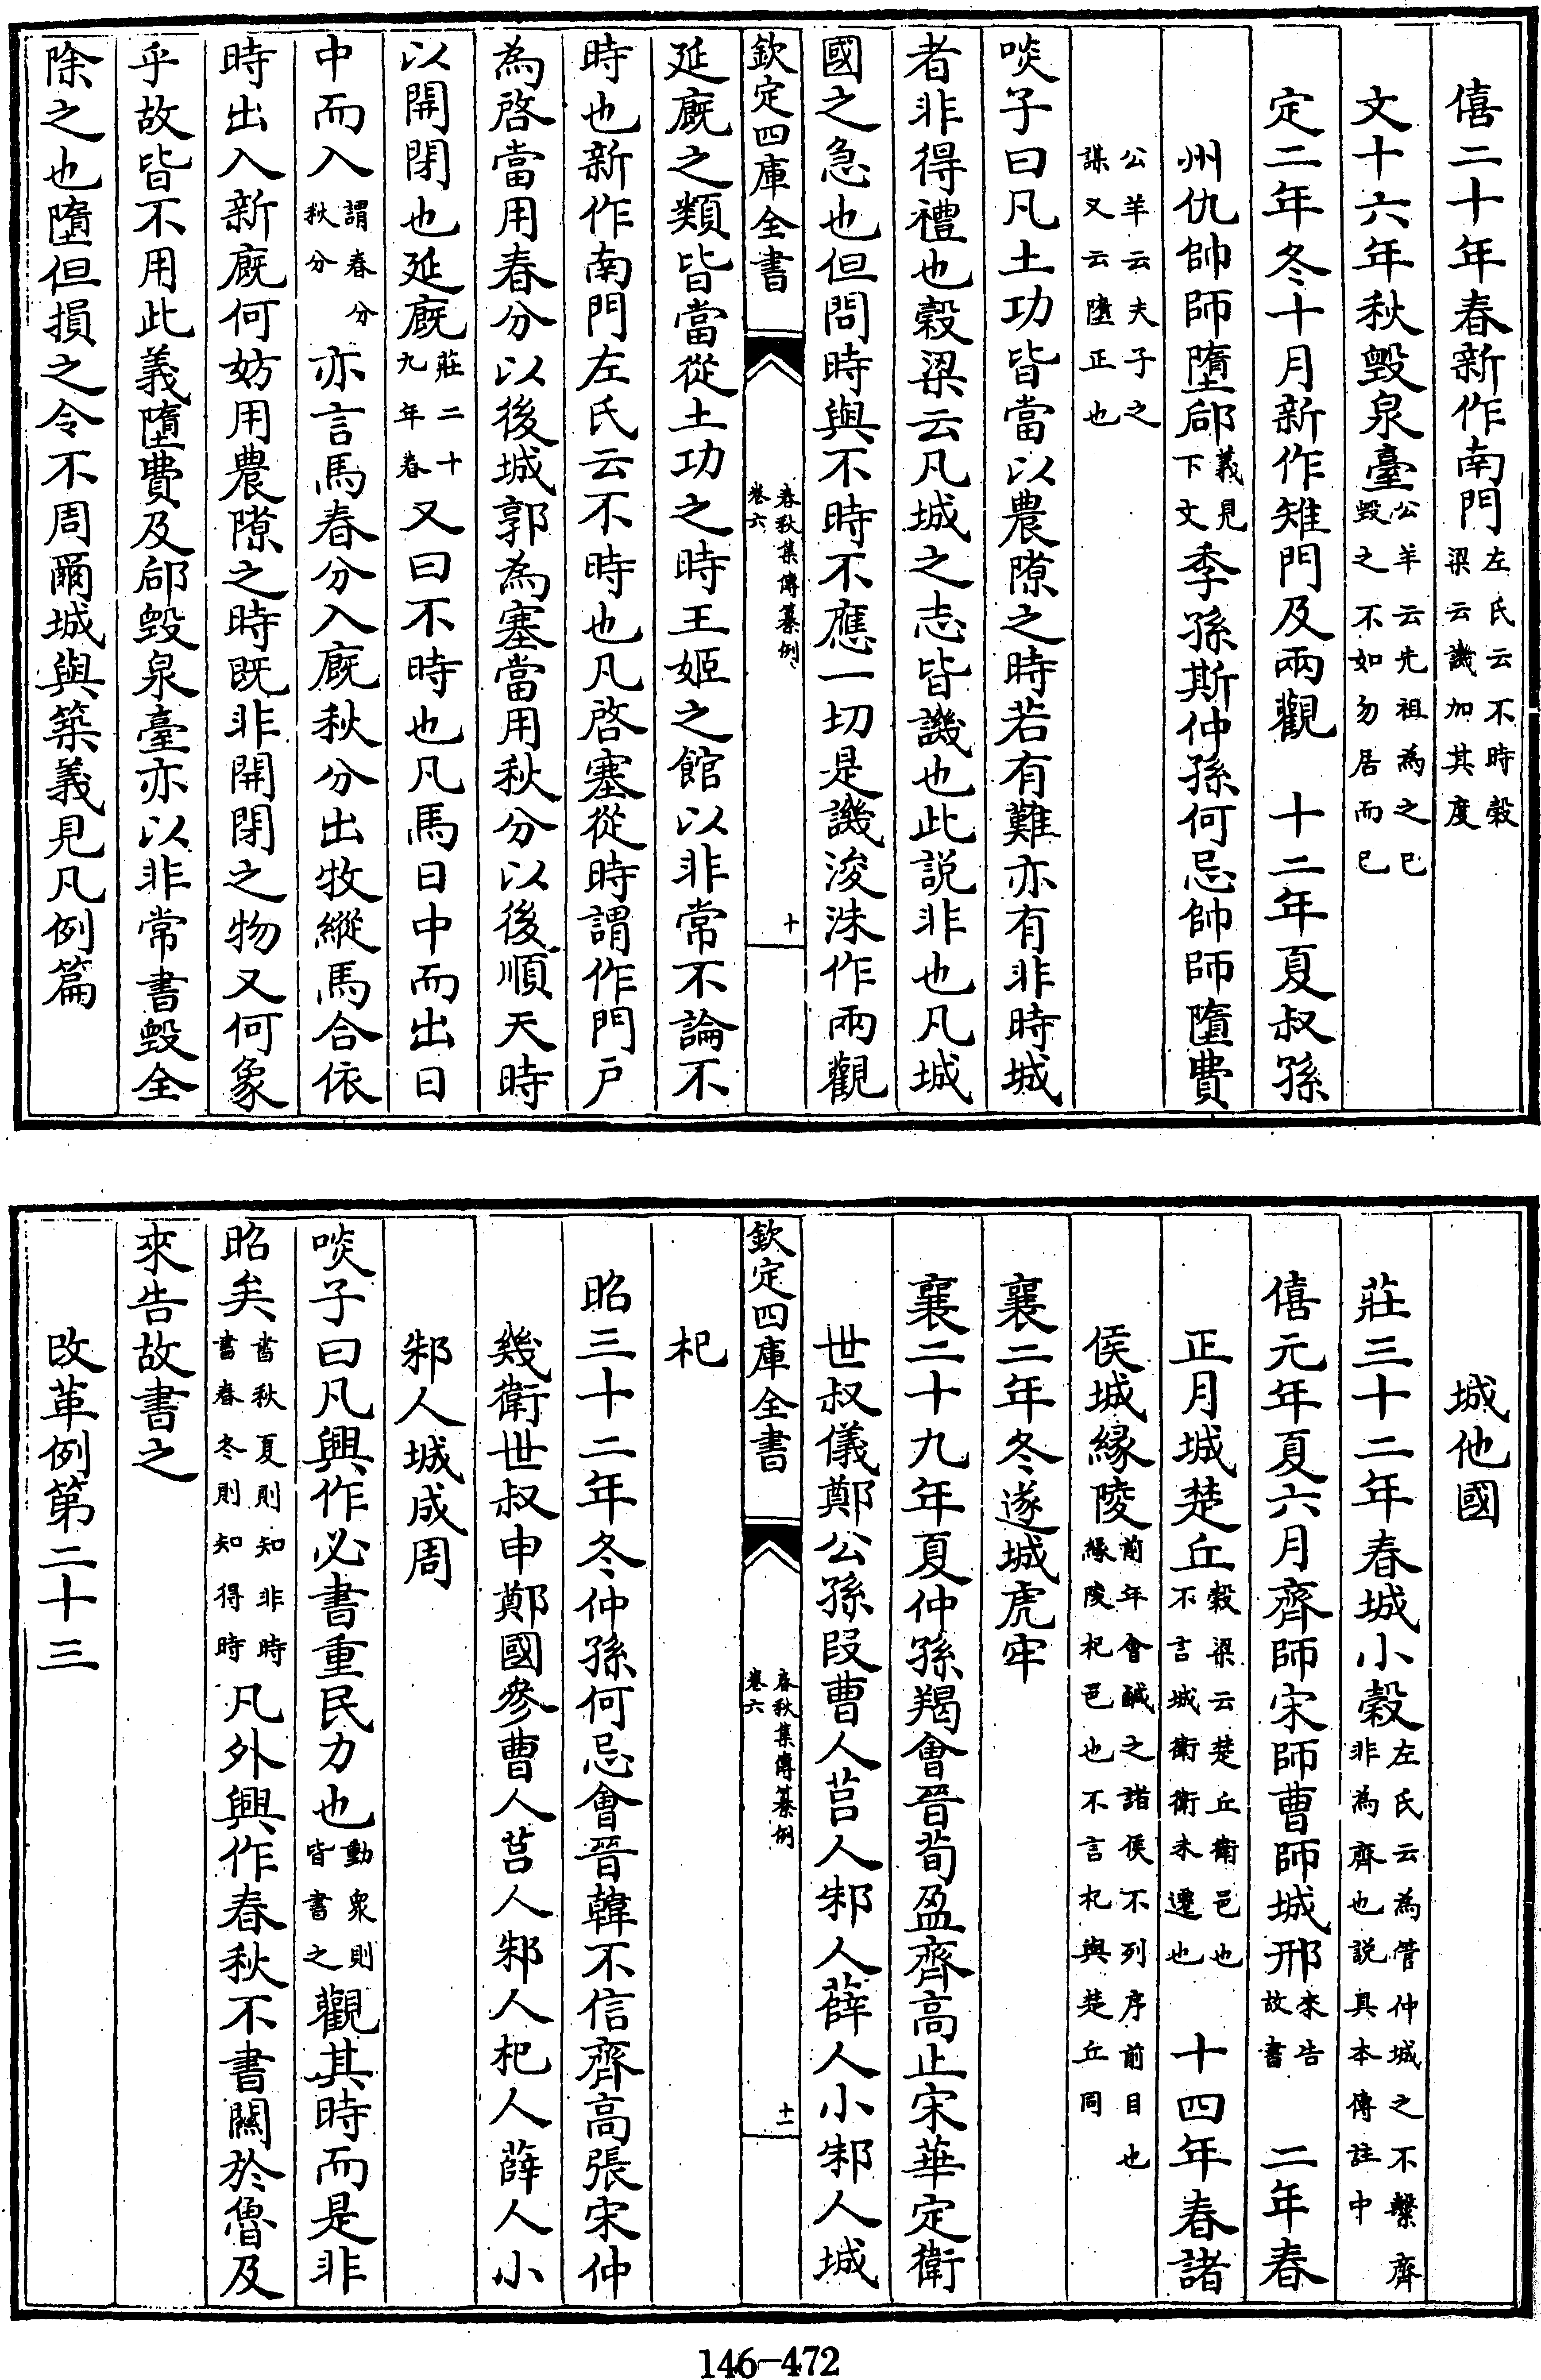 僖二十年春新作南門左氏云不時穀梁云譏加其度
文十六年秋毁泉臺公羊云先祖為之巳毁之不如勿居而巳
定二年冬十月新作雉門及兩觀　十二年夏叔孫
州仇帥師墮郈義見下文季孫斯仲孫何忌帥師墮費
公羊云夫子之謀又云墮正也
啖子曰凡土功皆當以農隙之時若有難亦有非時城
者非得禮也穀梁云凡城之志皆譏也此説非也凡城
國之急也但問時與不時不應一切是譏浚洙作兩觀
欽定四庫全書　春秋集傳纂例卷六　十
延廐之類皆當從土功之時王姬之館以非常不論不
時也新作南門左氏云不時也凡啓塞從時謂作門戶
為啓當用春分以後城郭為塞當用秋分以後順天時
以開閉也延廐莊二十九年春又曰不時也凡馬日中而出日
中而入謂春分秋分亦言馬春分入廐秋分出牧縱馬合依
時出入新廐何妨用農隙之時既非開閉之物又何象
乎故皆不用此義墮費及郈毁泉臺亦以非常書毁全
除之也墮但損之令不周爾城與築義見凡例篇
城他國
莊三十二年春城小穀左氏云為管仲城之不繫齊非為齊也説具本傳註中
僖元年夏六月齊師宋師曹師城邢來告故書　二年春
正月城楚丘穀梁云楚丘衛邑也不言城衛衛未遷也　十四年春諸
侯城緣陵前年會鹹之諸侯不列序前目也緣陵杞邑也不言杞與楚丘同
襄二年冬遂城虎牢
襄二十九年夏仲孫羯會晉荀盈齊高止宋華定衛
世叔儀鄭公孫段曹人莒人邾人薛人小邾人城
欽定四庫全書　春秋集傳纂例卷六　十一
杞
昭三十二年冬仲孫何忌會晉韓不信齊高張宋仲
幾衛世叔申鄭國參曹人莒人邾人杞人薛人小
邾人城成周
啖子曰凡興作必書重民力也動衆則皆書之觀其時而是非
昭矣書秋夏則知非時書春冬則知得時凡外興作春秋不書闗於魯及
來告故書之
改革例第二十三
146-472